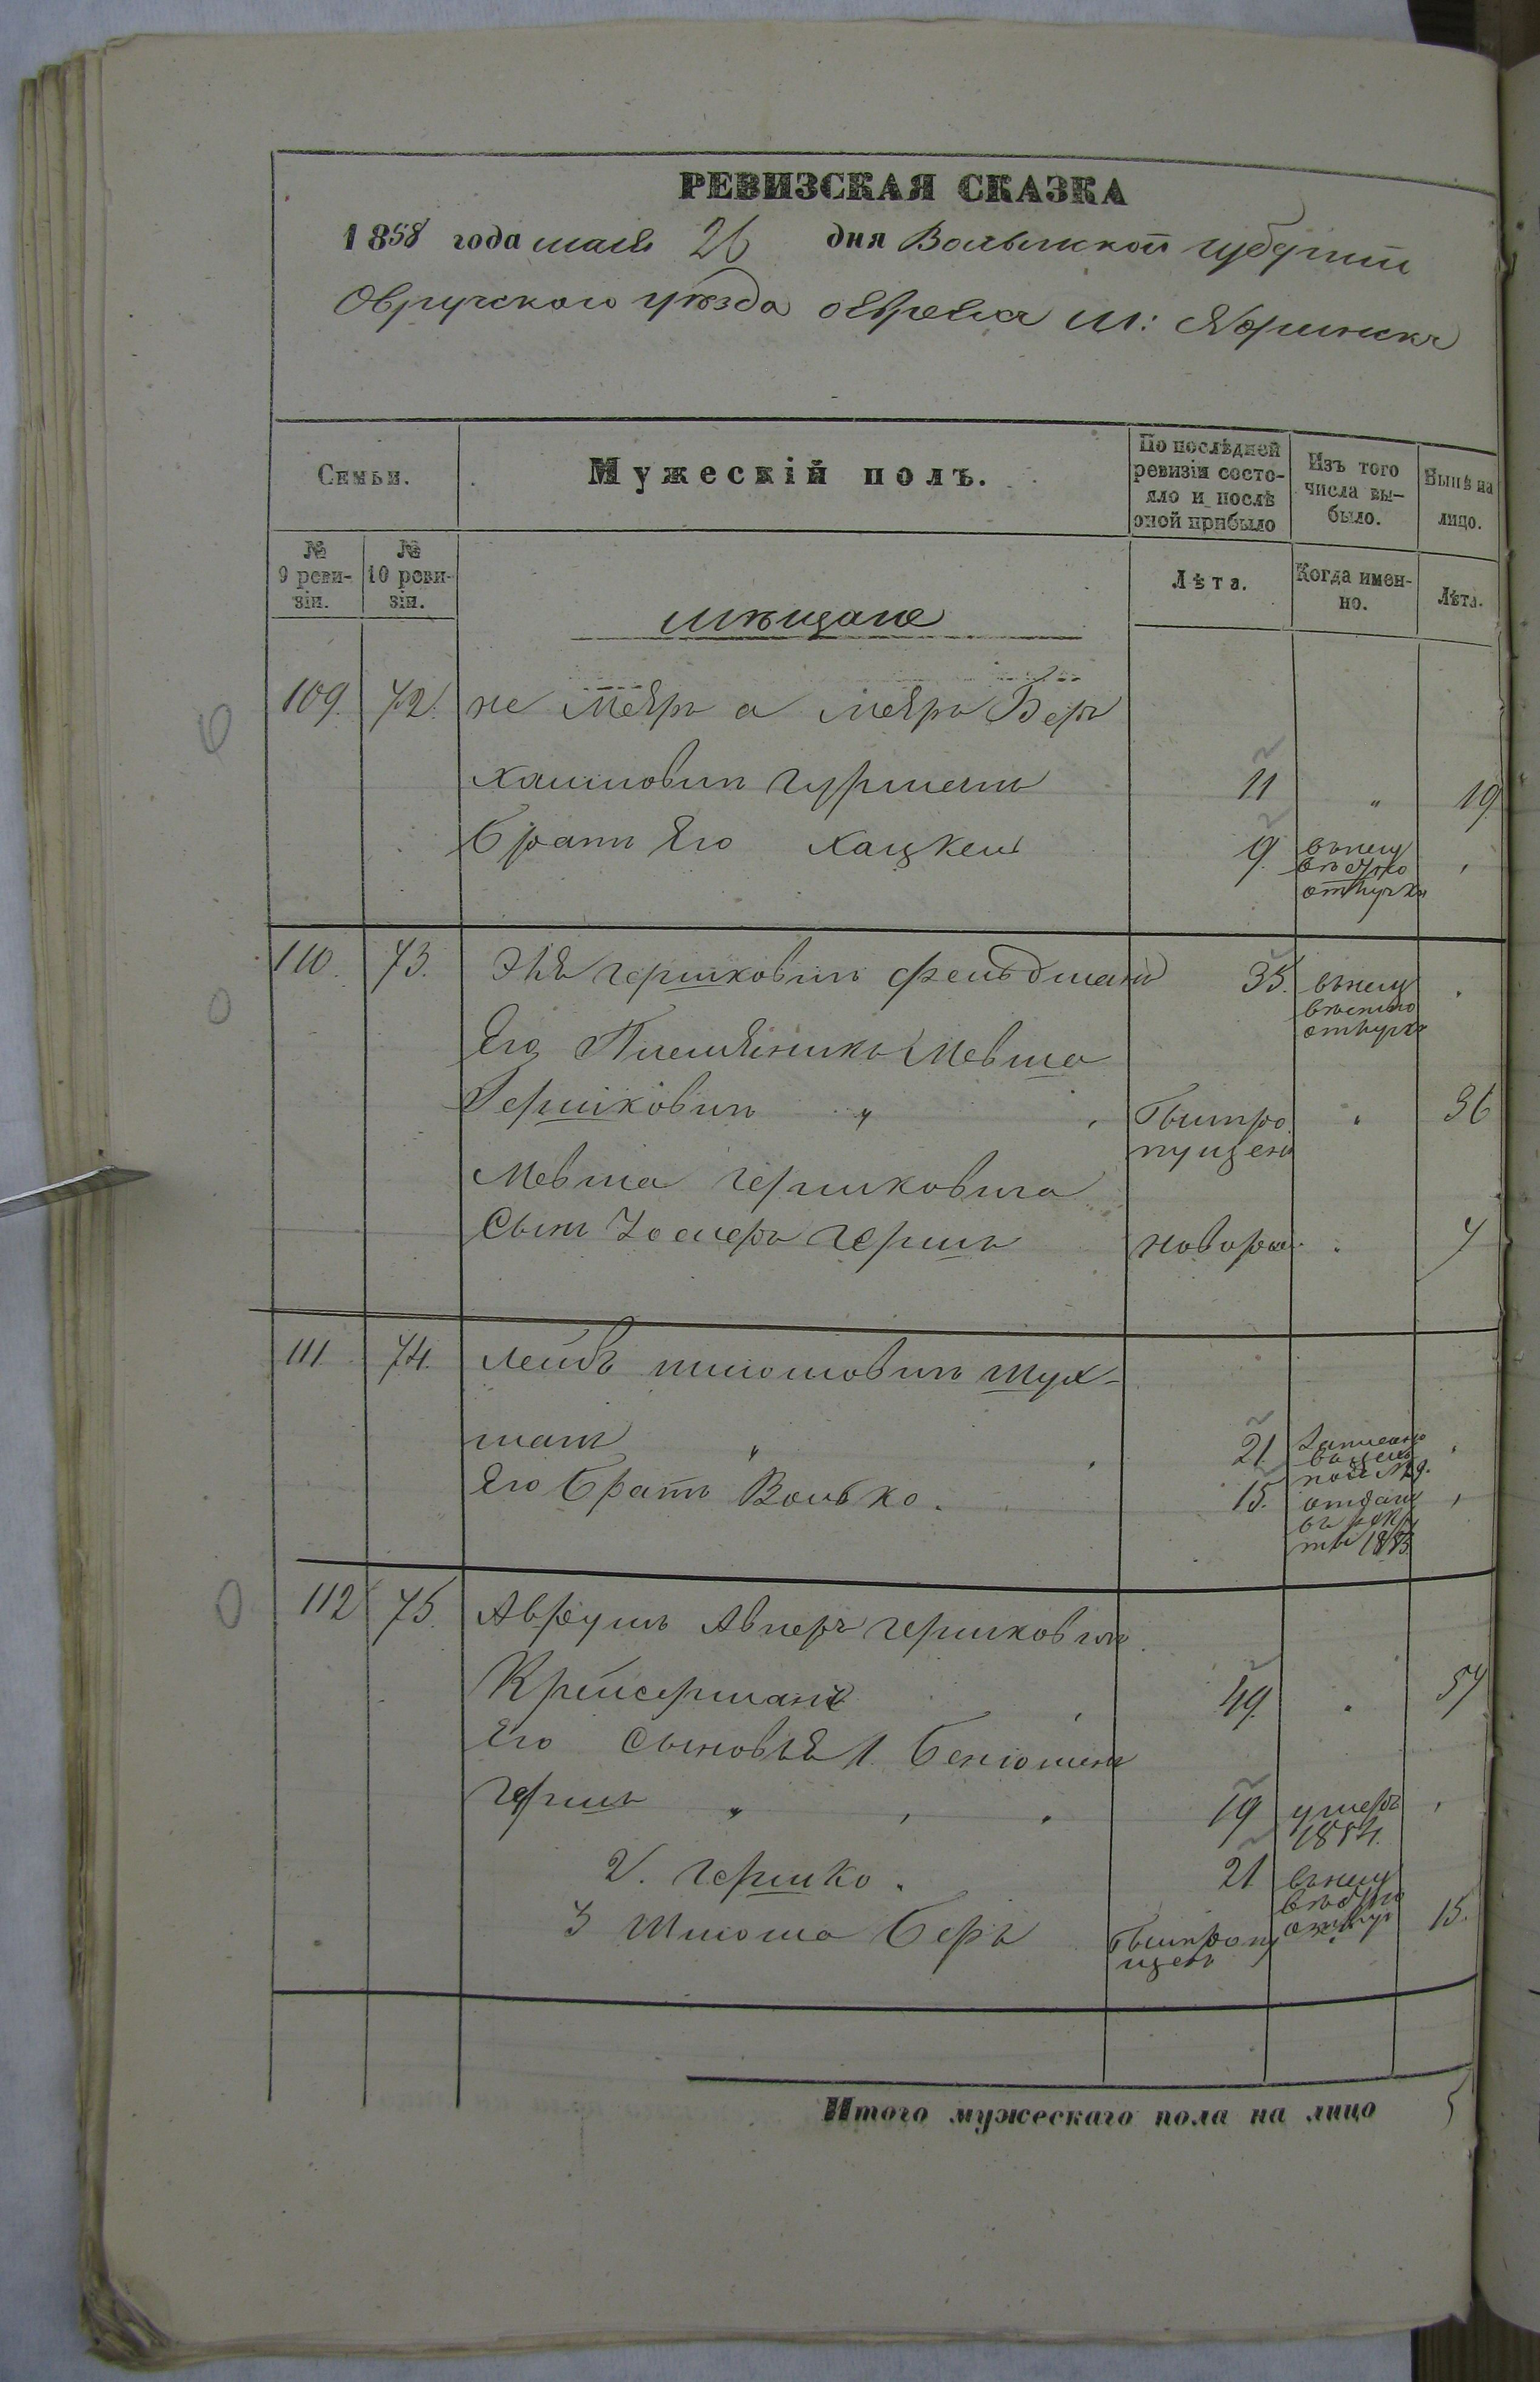 РЕВИЗСКАЯ СКАЗКА
1858 года мая 26 дня Волынской губернии
Овручского уѣзда м: Норинска
Семьи.
Мужескій полъ.
По послѣдней ревизіи состо-
яло и послѣ оной прибыло
Изъ того числа вы-
было.
Нынѣ на лицо.
№ 9 реви-
зіи.
№ 10 реви-
зіи.
мѣщане
Лѣта.
Когда имен-
но.
Лѣта.
109. 72. не Меяръ а Меяръ Беръ
Хаимовичъ 11 " 19
братъ Его Хацкель 9
110. 73. Гершковичъ Фельдманъ 35.
Его Племяникъ Мевша
Гершковичъ " былъ про
пущенъ 36
Мевша Гершковича
Сынъ Іосперъ Гершъ новорож. 4
111. 74. Лейбъ Шлиомовичъ Шух-
манъ " 21
Его братъ Волько. 15. отданъ
въ рекру
ты
112 75. Аврумъ Авнеръ Гершковичъ
Крейсерманъ 49. 57
Его Сыновья 1. Бенюменъ
Гершъ " 19 умеръ
1854.
2. Гершко. 21
3 Шлиома Беръ былъ пропу
щенъ 15.
Итого мужескаго пола на лицо 5